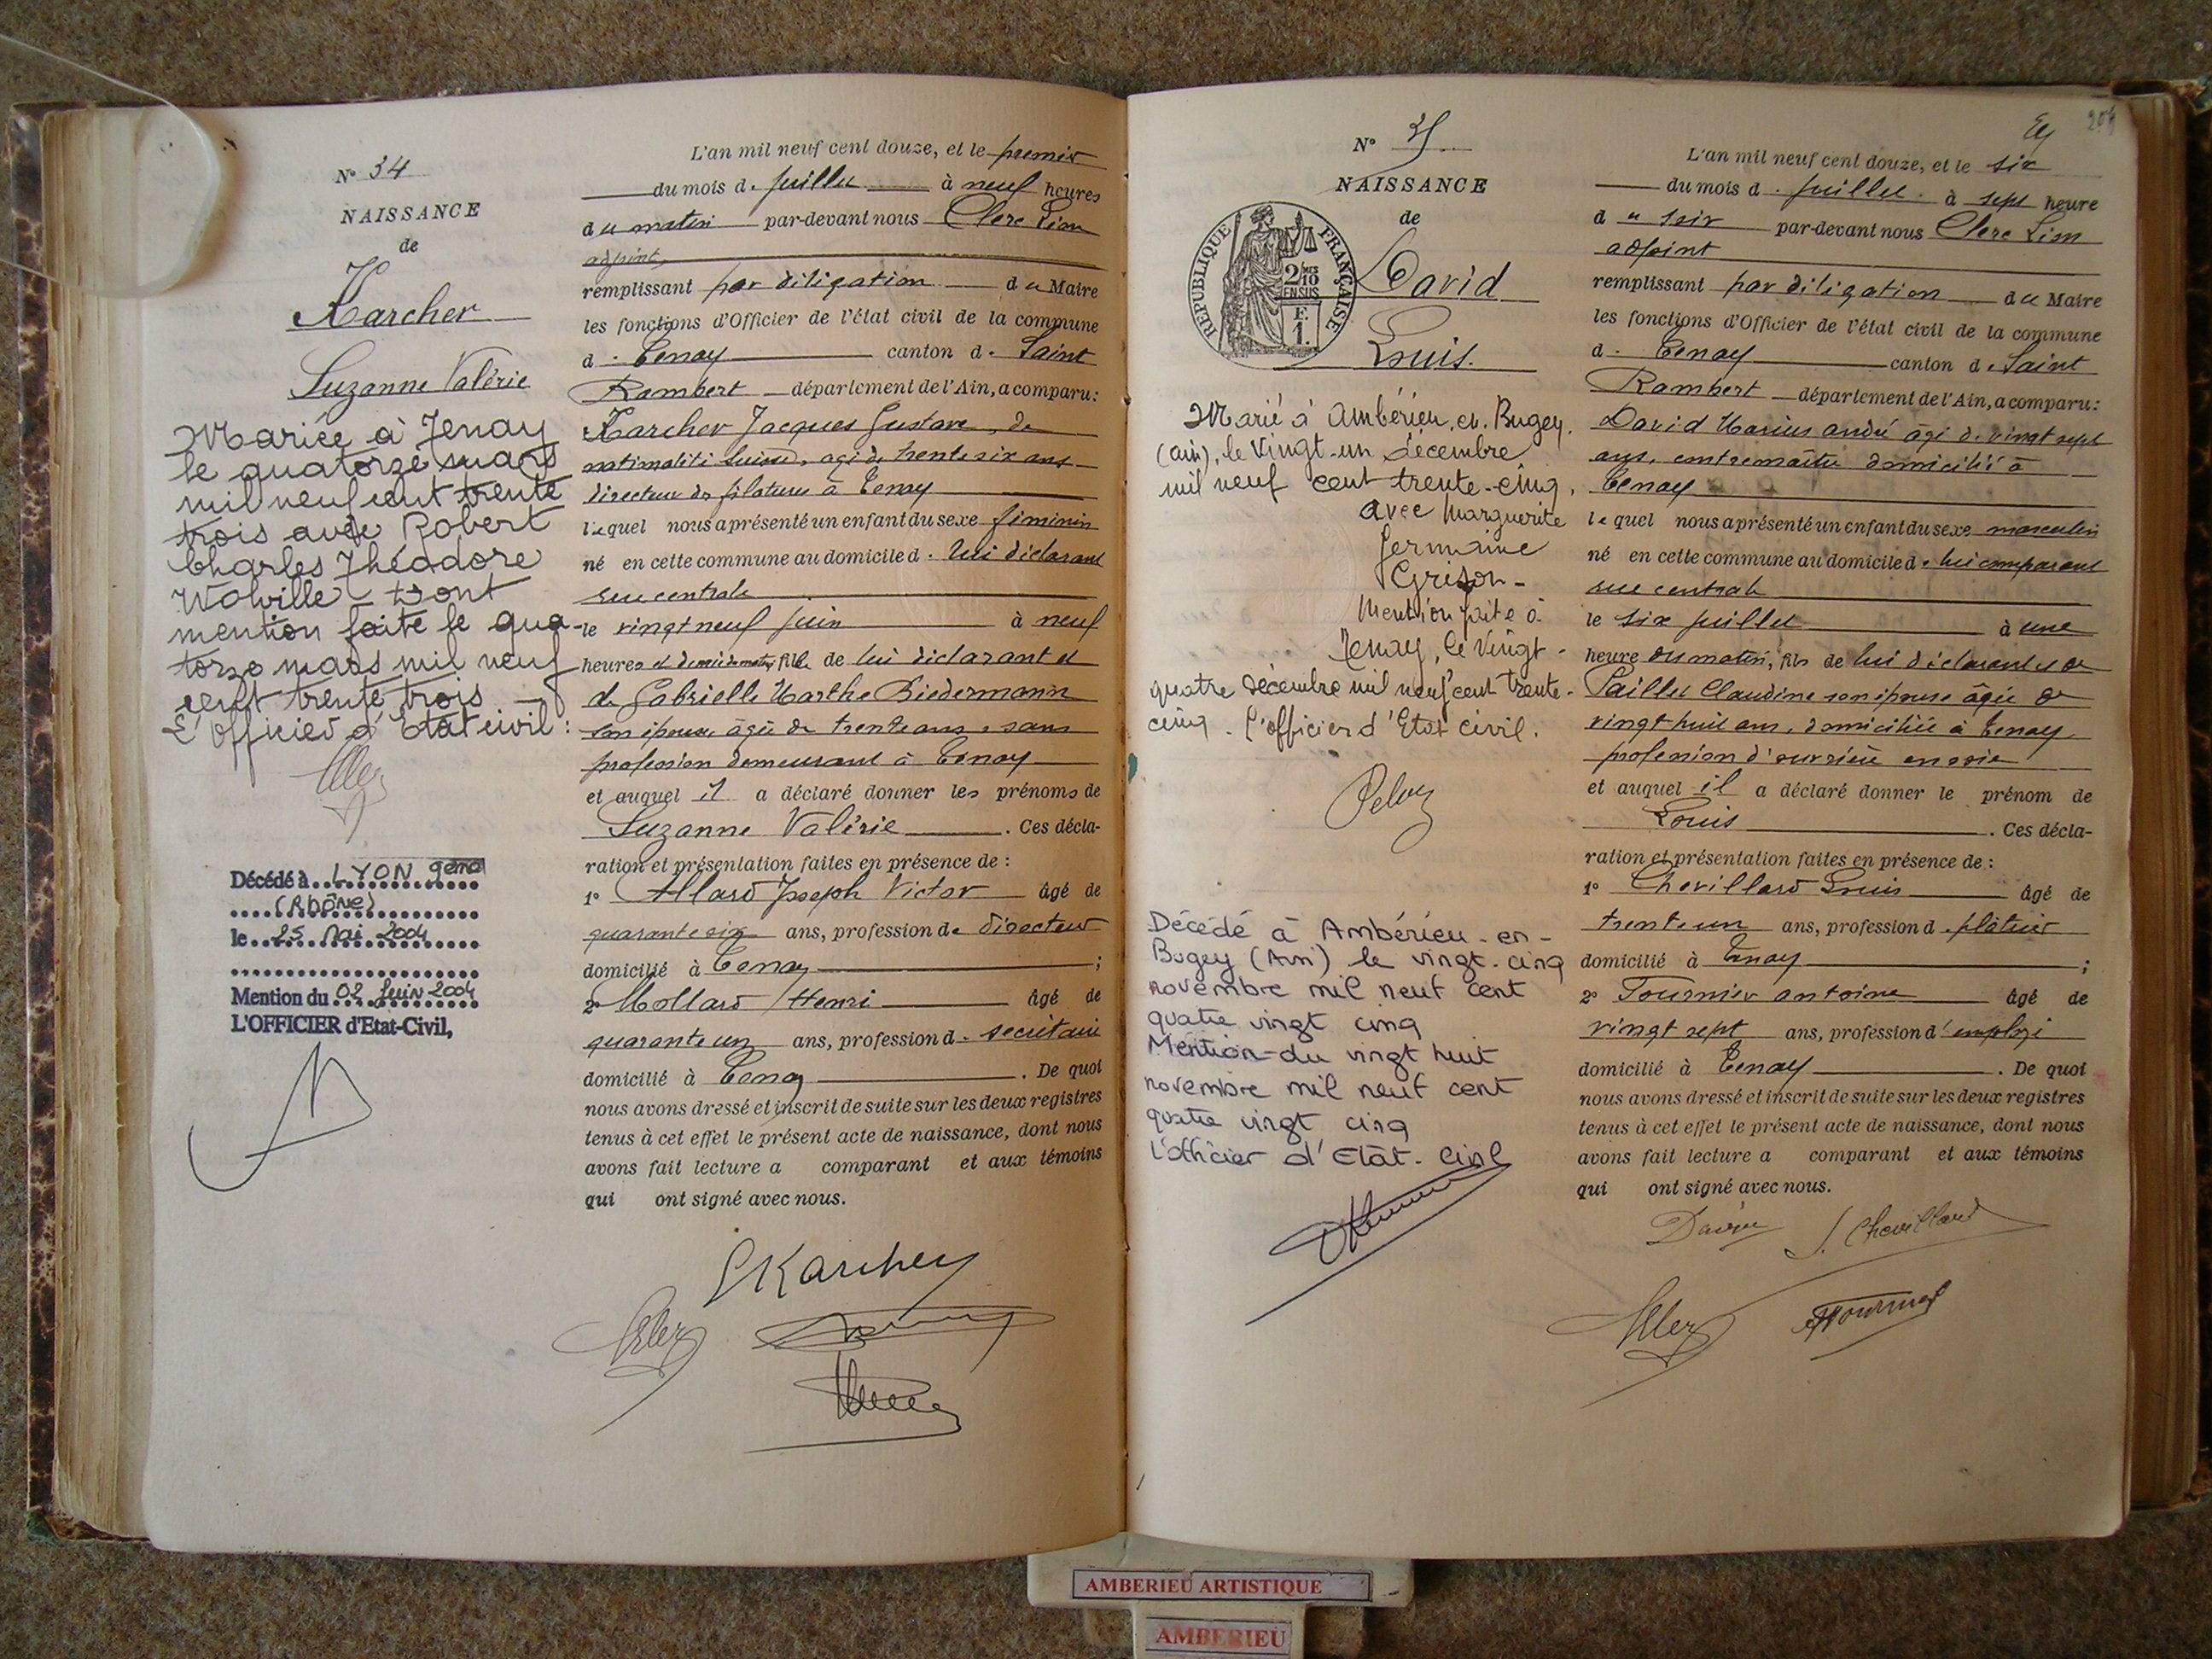 N° 34
NAISSANCE
de
Karcher
Suzanne Valérie
Mariée à Tenay
le quatorze mars
mil neuf cent trente
trois avec Robert
Charles Théodore
Wolville dont
mention faite le qua-
torze mars mil neuf
cent trente trois
L'Officier d'Etat civil :
Décédé à LYON 9eme
(RHÔNE)
le 25 Mai 2004
Mention du 02 Juin 2004
L'OFFICIER d'Etat-Civil,
L'an mil neuf cent douze, et le premier
du mois de juillet à neuf heures
du matin par-devant nous Clerc Léon
adjoint
remplissant par déligation du Maire
les fonctions d'Officier de l'état civil de la commune
de Tenay canton de Saint
Rambert département de l'Ain, a comparu :
Karcher Jacques Gustave, de
nationalité suisse, agé de trente six ans
directeur de filature à Tenay
lequel nous a présenté un enfant du sexe féminin
né en cette commune au domicile de lui déclarant
rue centrale
le vingt neuf juin à neuf
heures et demie du matin, fille de lui déclarant et
de Gabrielle Marthe Biedermann
son épouse âgée de trente ans, sans
profession demeurant à Tenay
et auquel il a déclaré donner les prénoms de
Suzanne Valérie . Ces décla-
ration et présentation faites en présence de :
1° Allard Joseph Victor âgé de
quarante six ans, profession de directeur
domicilié à Tenay ;
2° Mollard Henri âgé de
quarante un ans, profession de secrétaire
domicilié à Tenay . De quoi
nous avons dressé et inscrit de suite sur les deux registres
tenus à cet effet le présent acte de naissance, dont nous
avons fait lecture a comparant et aux témoins
qui ont signé avec nous.
Karcher
N° 35
NAISSANCE
de
REPUBLIQUE FRANÇAISE
2/10 EN SUS
F. 1.
David
Louis.
Marié à Ambérieu-en-Bugey
(ain), le vingt-un décembre
mil neuf cent trente-cinq,
avec Marguerite
Germaine
Grison-
Mention faite à
Tenay, le vingt-
quatre décembre mil neuf cent trente-
cinq. L'officier d'Etat civil.
Décédé à Ambérieu-en-
Bugey (Ain) le vingt-cinq
novembre mil neuf cent
quatre vingt cinq
Mention du vingt huit
novembre mil neuf cent
quatre vingt cinq
L'officier d'Etat-Civil
204
L'an mil neuf cent douze, et le six
du mois de juillet à sept heure
du soir par-devant nous Clerc Léon
adjoint
remplissant par déligation du Maire
les fonctions d'Officier de l'état civil de la commune
de Tenay canton de Saint
Rambert département de l'Ain, a comparu :
David Marius andré âgé de vingt sept
ans, contremaître domicilié à
Tenay
lequel nous a présenté un enfant du sexe masculin
né en cette commune au domicile de lui comparant
rue centrale
le six juillet à une
heure du matin, fils de lui déclarant et de
Paillet Claudine son épouse âgée de
vingt huit ans, domiciliée à Tenay,
profession d'ouvrière en soie
et auquel il a déclaré donner le prénom de
Louis . Ces décla-
ration et présentation faites en présence de :
1° Chevillard Louis âgé de
trente un ans, profession de plâtrier
domicilié à Tenay ;
2° Tournier antoine âgé de
vingt sept ans, profession d'employé
domicilié à Tenay . De quoi
nous avons dressé et inscrit de suite sur les deux registres
tenus à cet effet le présent acte de naissance, dont nous
avons fait lecture a comparant et aux témoins
qui ont signé avec nous.
David L. Chevillard
AMBERIEU ARTISTIQUE
AMBERIEU